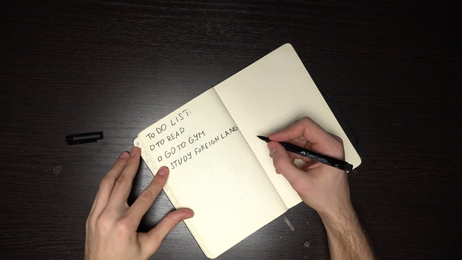 TO DO LIST:
TO READ
GO TO GYM
STUDY FOREIGN LANG